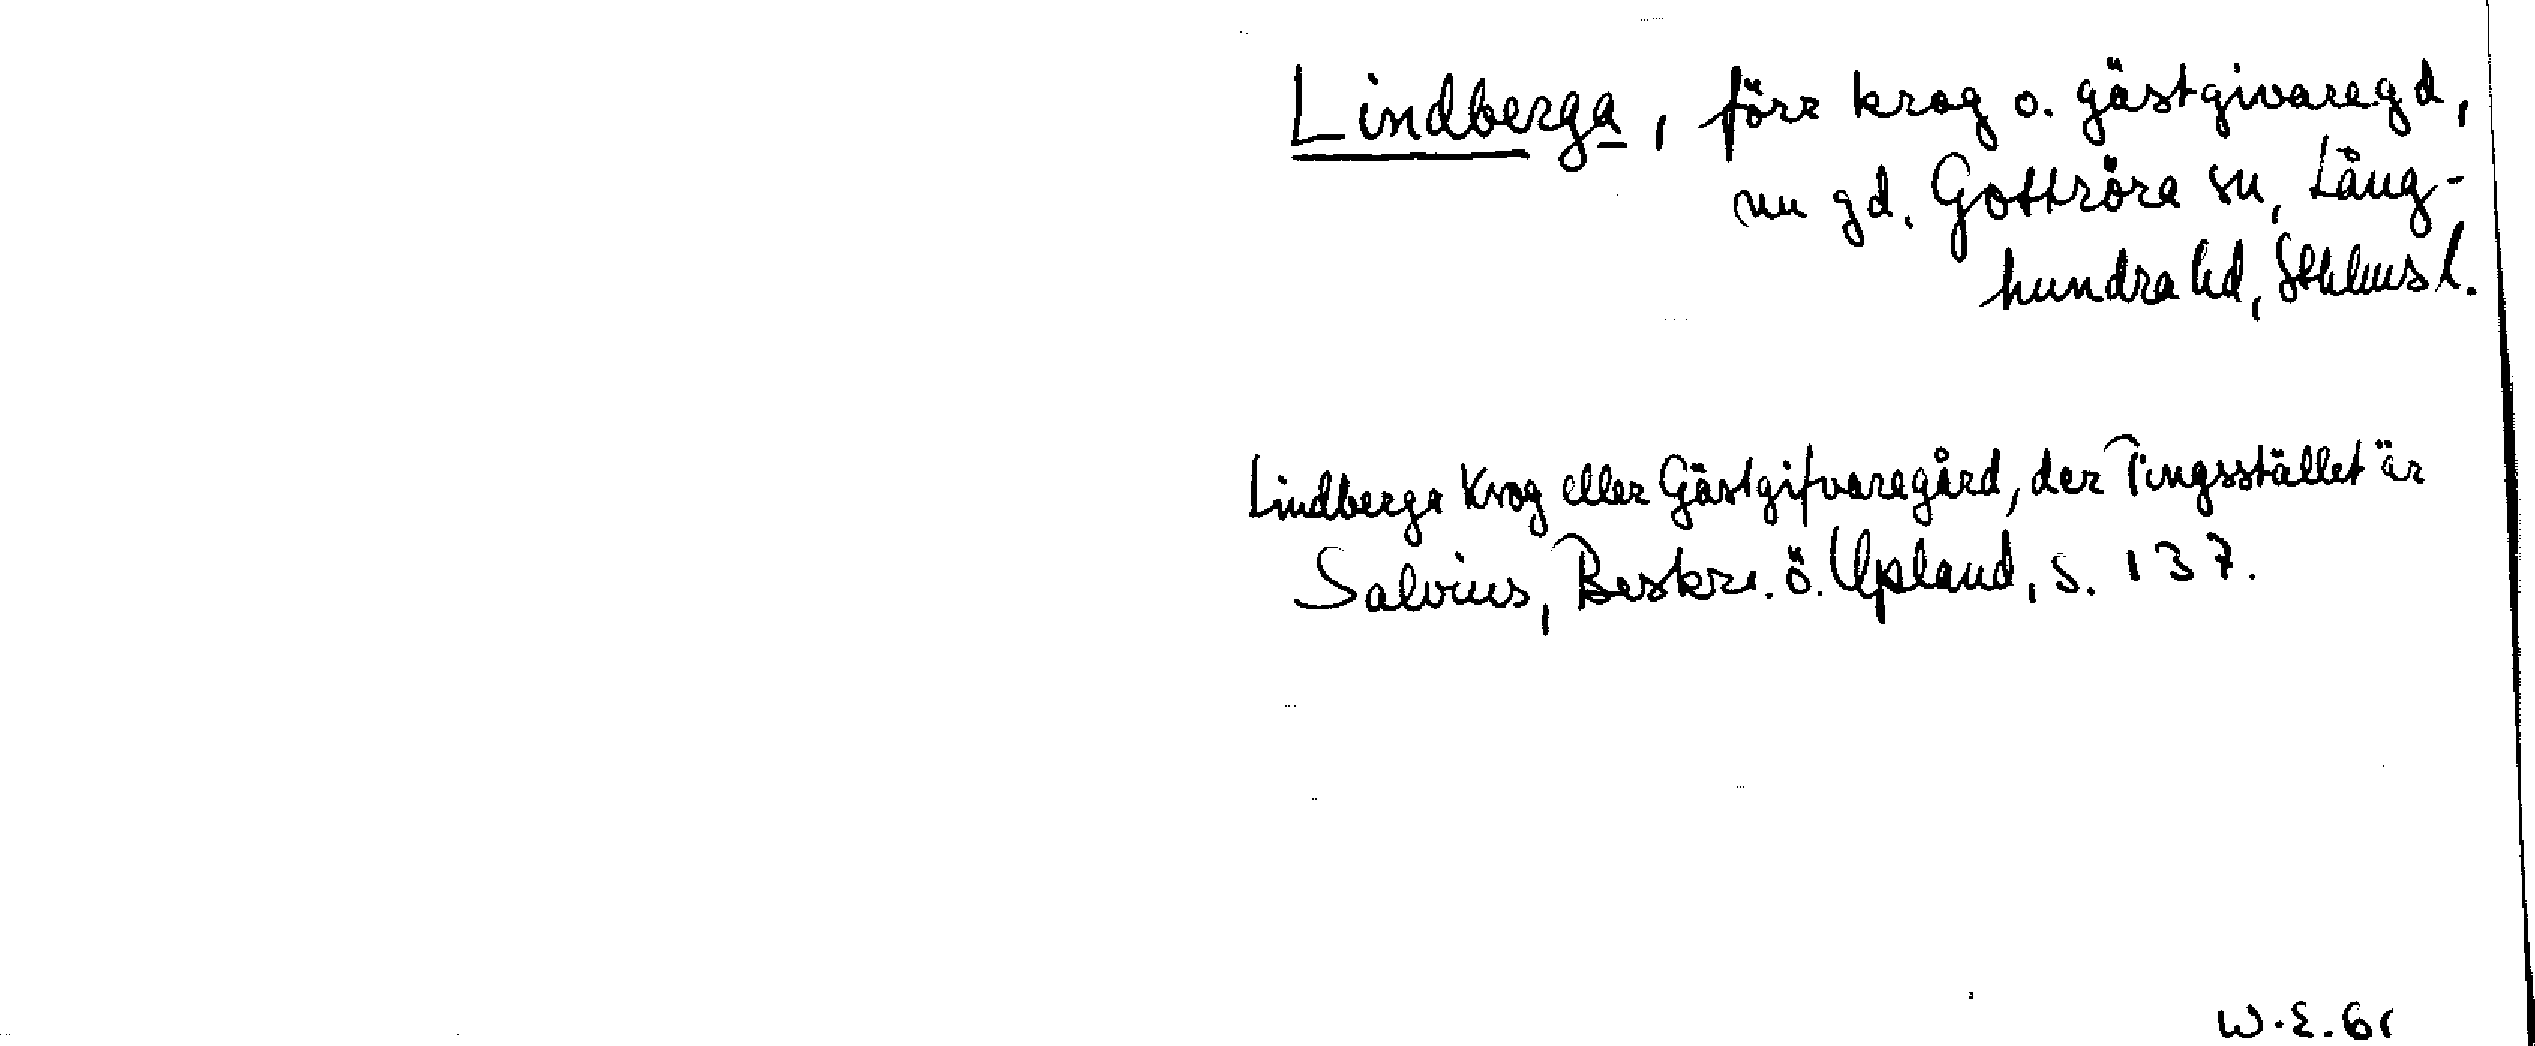 Lindberga, förr krog o. gästgivaregd,
nu gd, Gottröra sn, Lång-
hundra hd, Sthlms l.
Lindberga Krog eller Gästgifvaregård, der Tingsstället är
Salvius, Beskr. ö. Upland, s. 137.
W.E. 61